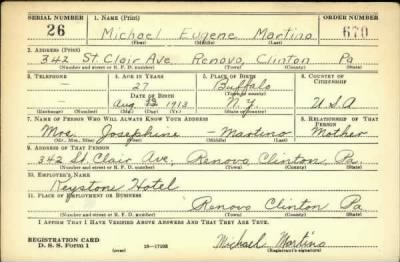 SERIAL NUMBER 1. NAME (Print) ORDER NUMBER
26 Michael Eugene Martino 670
(First) (Middle) (Last)
2. ADDRESS (Print)
342 St. Clair Ave. Renovo, Clinton Pa
(Number and street or R. F. D. number) (Town) (County) (State)
3. TELEPHONE 4. AGE IN YEARS 5. PLACE OF BIRTH 6. COUNTRY OF CITIZENSHIP
— 27 Buffalo
DATE OF BIRTH (Town or county)
Aug 1913 N.Y. U.S.A
(Mo.) (Day) (Yr.) (State or country)
7. NAME OF PERSON WHO WILL ALWAYS KNOW YOUR ADDRESS 8. RELATIONSHIP OF THAT PERSON
Mrs. Josephine — Martino Mother
(Mr., Mrs., Miss) (First) (Middle) (Last)
9. ADDRESS OF THAT PERSON
342 St. Clair Ave, Renovo, Clinton, Pa.
(Number and street or R. F. D. number) (Town) (County) (State)
10. EMPLOYER'S NAME
Keystone Hotel
11. PLACE OF EMPLOYMENT OR BUSINESS
Renovo Clinton Pa
(Number and street or R. F. D. number) (Town) (County) (State)
I AFFIRM THAT I HAVE VERIFIED ABOVE ANSWERS AND THAT THEY ARE TRUE.
REGISTRATION CARD
D. S. S. Form 1 (over) 16—17105 Michael Martino
(Registrant's signature)